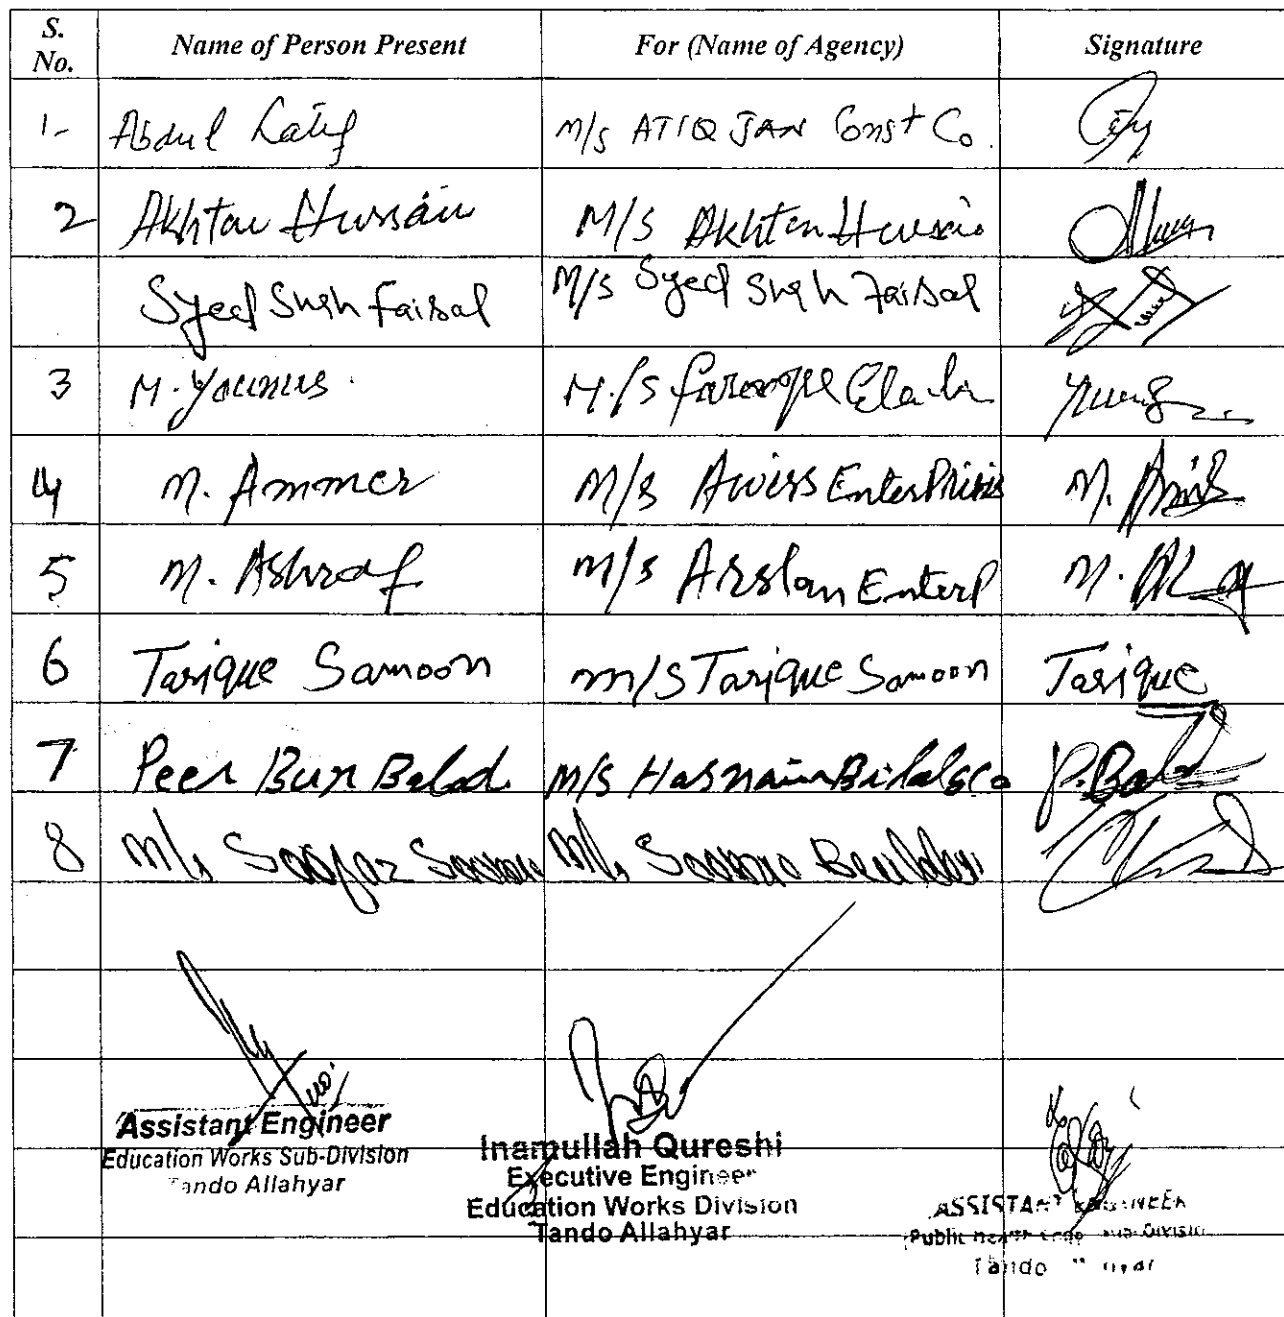 S. No. Name of Person Present For (Name of Agency) Signature
1- Abdul Latif M/s ATIQ JAN Const Co.
2 Akhtar Hussain M/S Akhtar Hussain
Syed Shah Faisal M/s Syed Shah Faisal
3 M. Younus M./S Farooque
4 M. Ammer M/s Awiss EnterPrises M.
5 M. Ashraf M/s Arslan EnterP M.
6 Tarique Samoon m/S Tarique Samoon Tarique
7 Peer Bux Balad M/S Hasnain Bilal & Co P. Balad
8 M/s M/s Soomro
Assistant Engineer
Education Works Sub-Division
Tando Allahyar
Inamullah Qureshi
Executive Engineer
Education Works Division
Tando Allahyar
ASSISTANT ENGINEER
Public Health Sub-Division
Tando